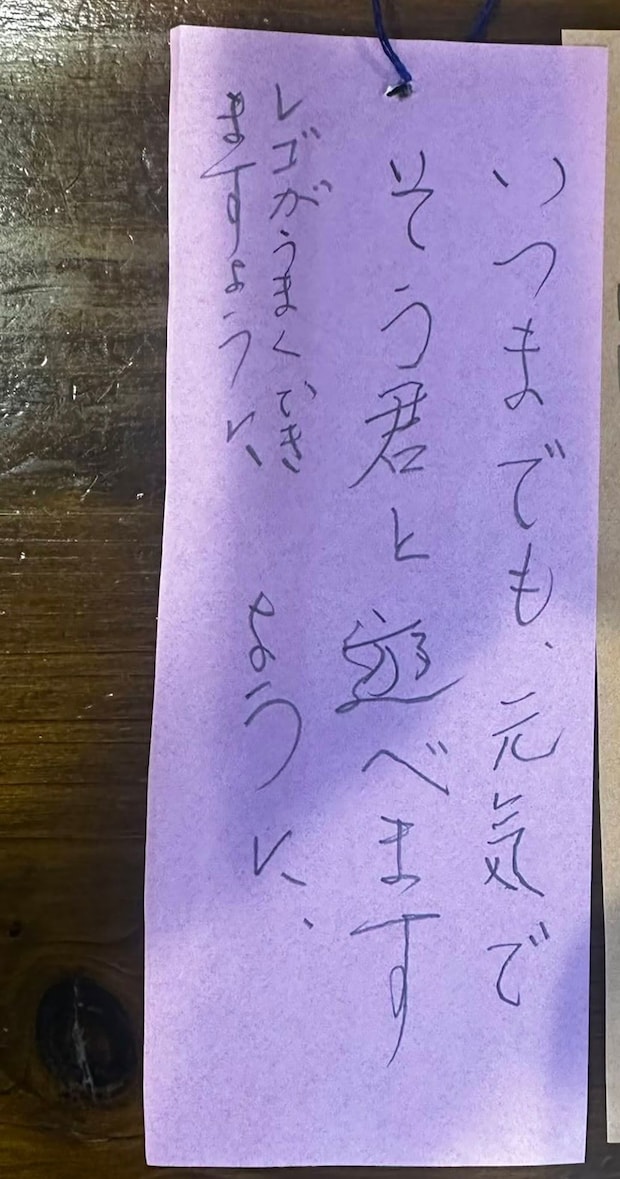 いつまでも、元気で
そう君と遊べます
ように、
レゴがうまくでき
ますように